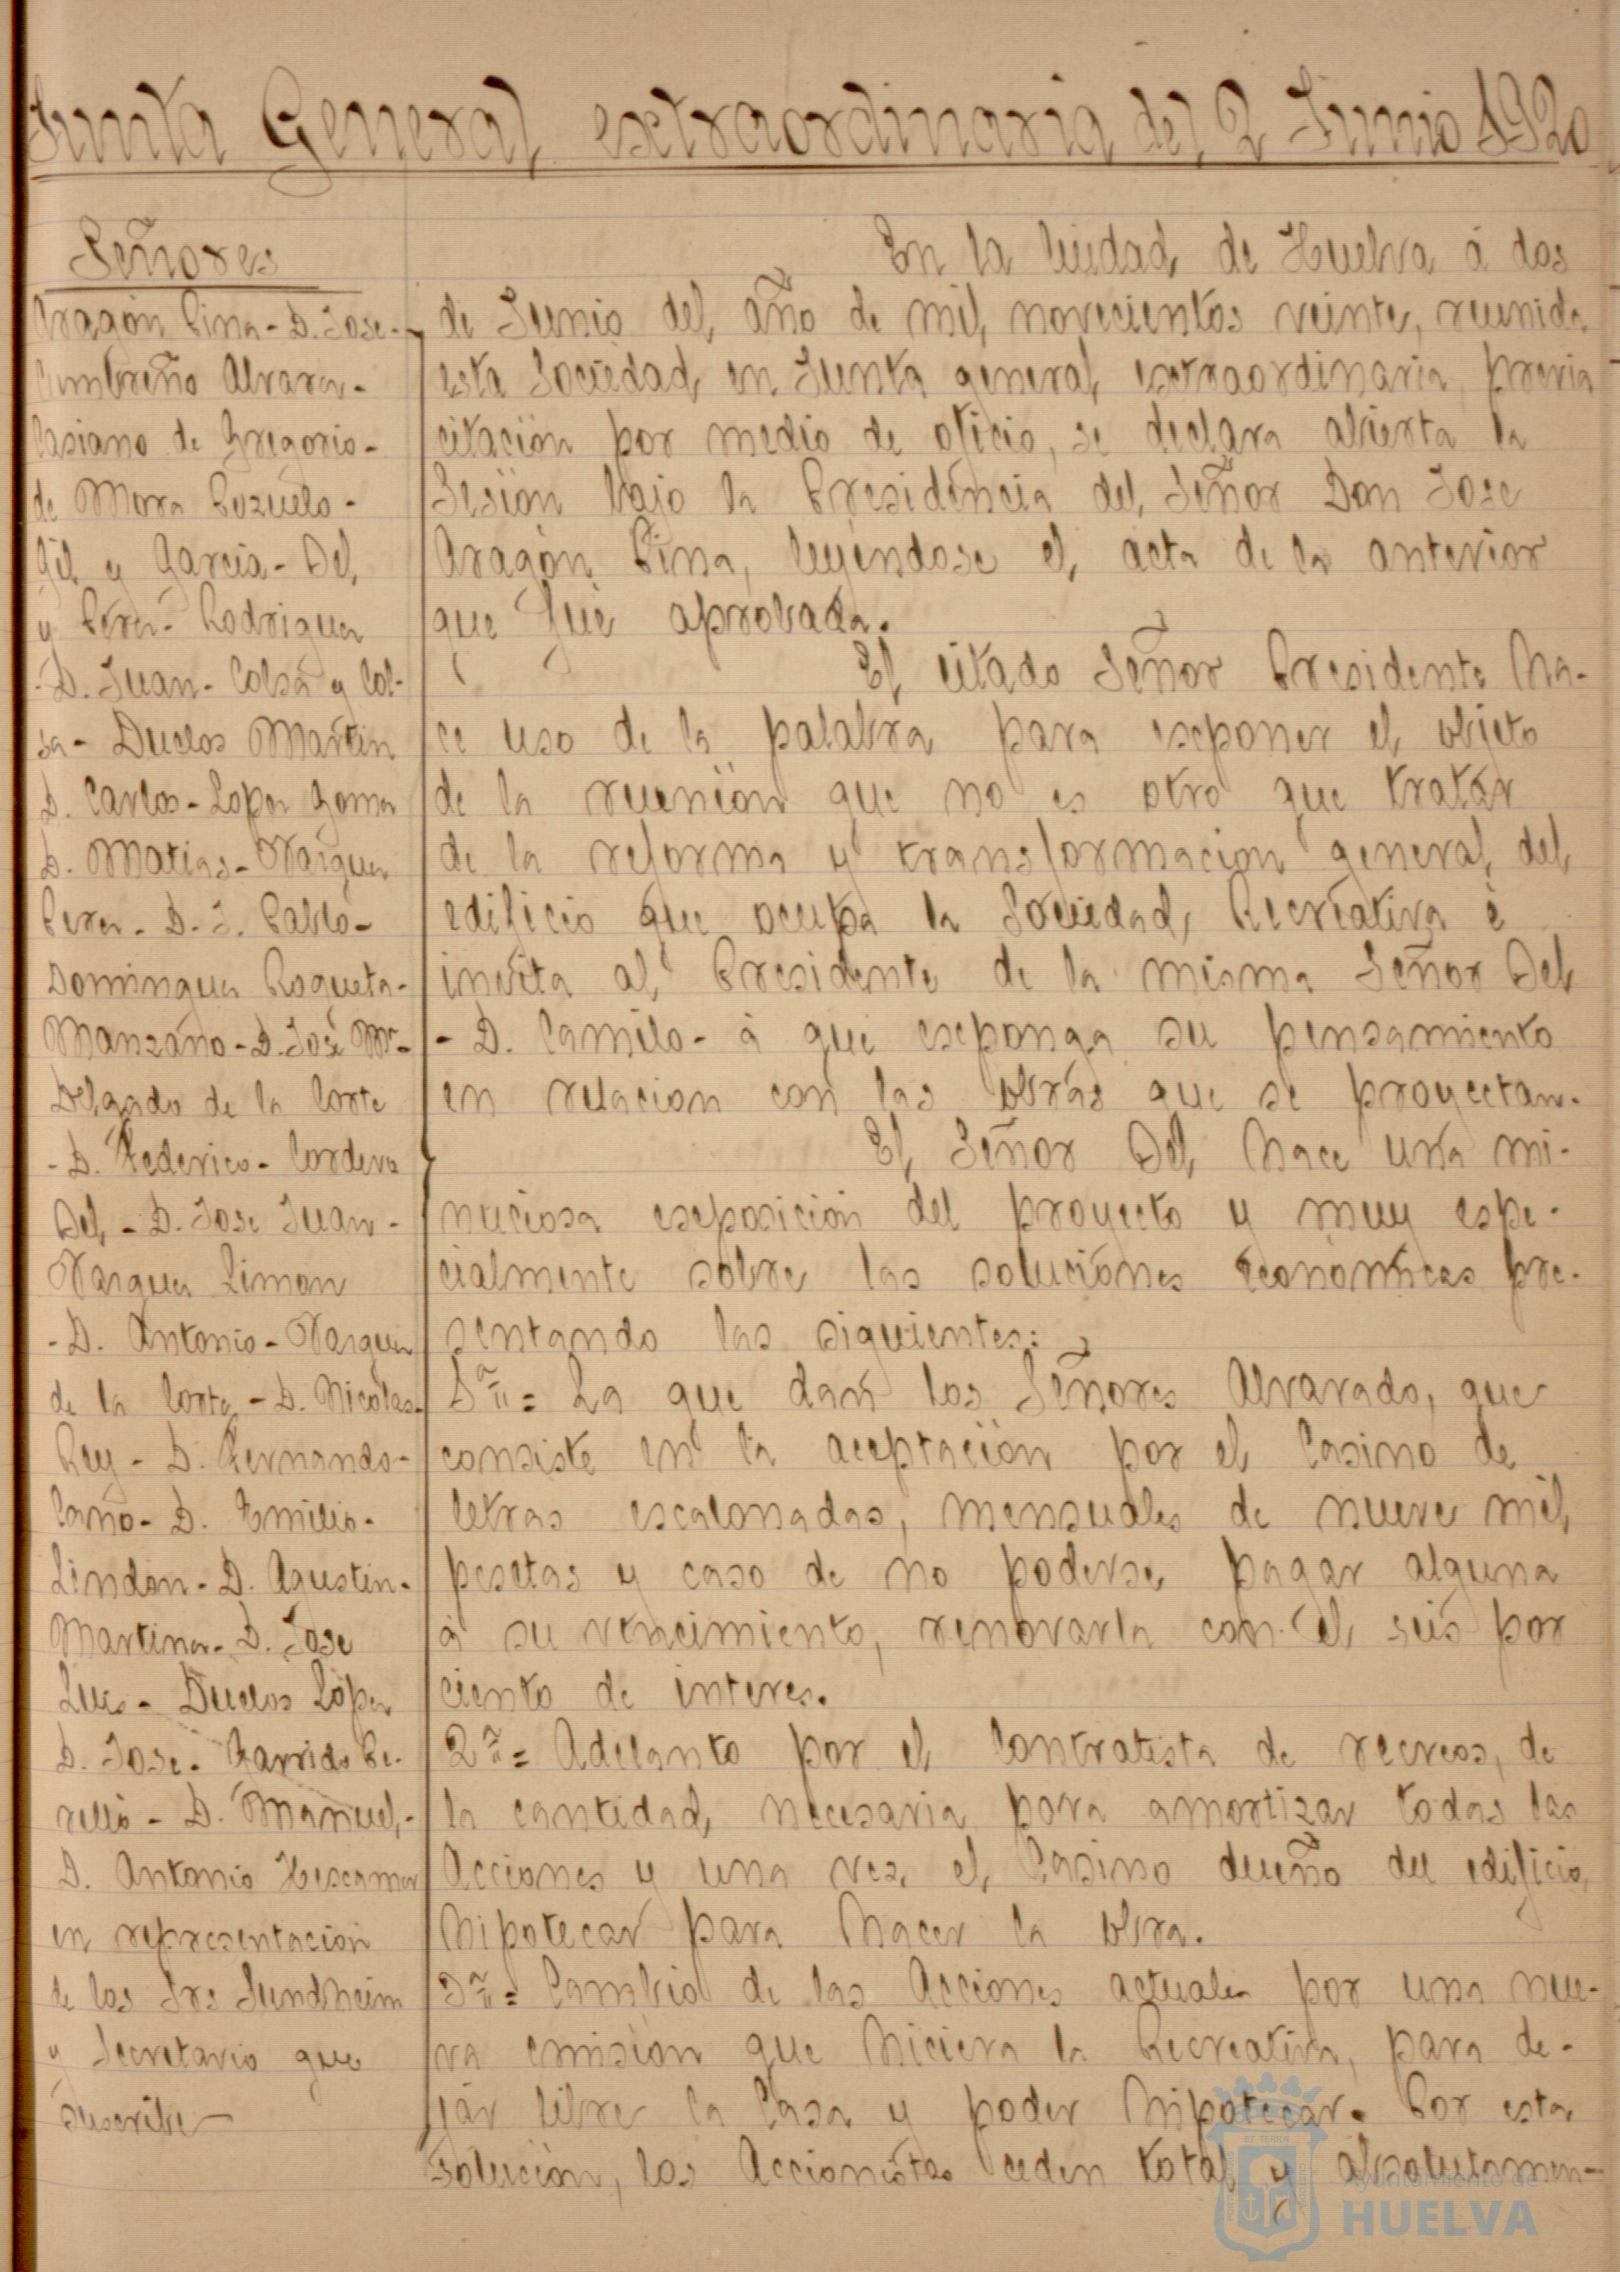 Junta General extraordinaria del 2 Junio 1920
Señores
Aragón Pina - D. Jose -
Cumbreño Alvarez -
Casiano de Gregorio -
de Mora Pozuelo -
Gil y Garcia - Del
y Perez - Rodriguez
- D. Juan - Colsa y Col-
sa - Duclos Martin
D. Carlos - Lopez Gomez
D. Matias - Vazquez
Perez - D. J. Pablo -
Dominguez Roqueta -
Manzano - D. José Mª -
Delgado de la Corte
- D. Federico - Cordero
Del - D. Jose Juan -
Vazquez Limon
- D. Antonio - Vazquez
de la Corte - D. Nicolas -
Rey - D. Fernando -
Caño - D. Emilio -
Lindon - D. Agustin -
Martinez - D. Jose
Luis - Duclos López
D. Jose - Garrido Pe-
rello - D. Manuel -
D. Antonio
en representacion
de los Srs Sundheim
y Secretario que
suscribe
En la Ciudad de Huelva á dos
de Junio del año de mil novecientos veinte, reunida
esta Sociedad en Junta general extraordinaria previa
citación por medio de oficio, se declara abierta la
Sesión bajo la Presidencia del Señor Don Jose
Aragón Pina, leyéndose el acta de la anterior
que fué aprobada.
El citado Señor Presidente ha-
ce uso de la palabra para exponer el objeto
de la reunión que no es otro que tratar
de la reforma y transformación general del
edificio que ocupa la Sociedad Recreativa é
invita al Presidente de la misma Señor Del
- D. Camilo - á que exponga su pensamiento
en relacion con las obras que se proyectan.
El Señor Del hace una mi-
nuciosa exposición del proyecto y muy espe-
cialmente sobre las soluciones económicas pre-
sentando las siguientes:
1ª = La que dan los Señores Alvarado, que
consiste en la aceptación por el Casino de
letras escalonadas, mensuales de nueve mil
pesetas y caso de no poderse pagar alguna
á su vencimiento, renovarla con el seis por
ciento de interes.
2ª = Adelanto por el Contratista de recreos, de
la cantidad necesaria para amortizar todas las
Acciones y una vez el Casino dueño del edificio,
hipotecar para hacer la obra.
3ª = Cambio de las Acciones actuales por una nue-
va emisión que hiciera la Recreativa, para de-
jar libre la Casa y poder hipotecar. Por esta
solución, los Accionistas ceden total y absolutamen-
Ayuntamiento de
HUELVA